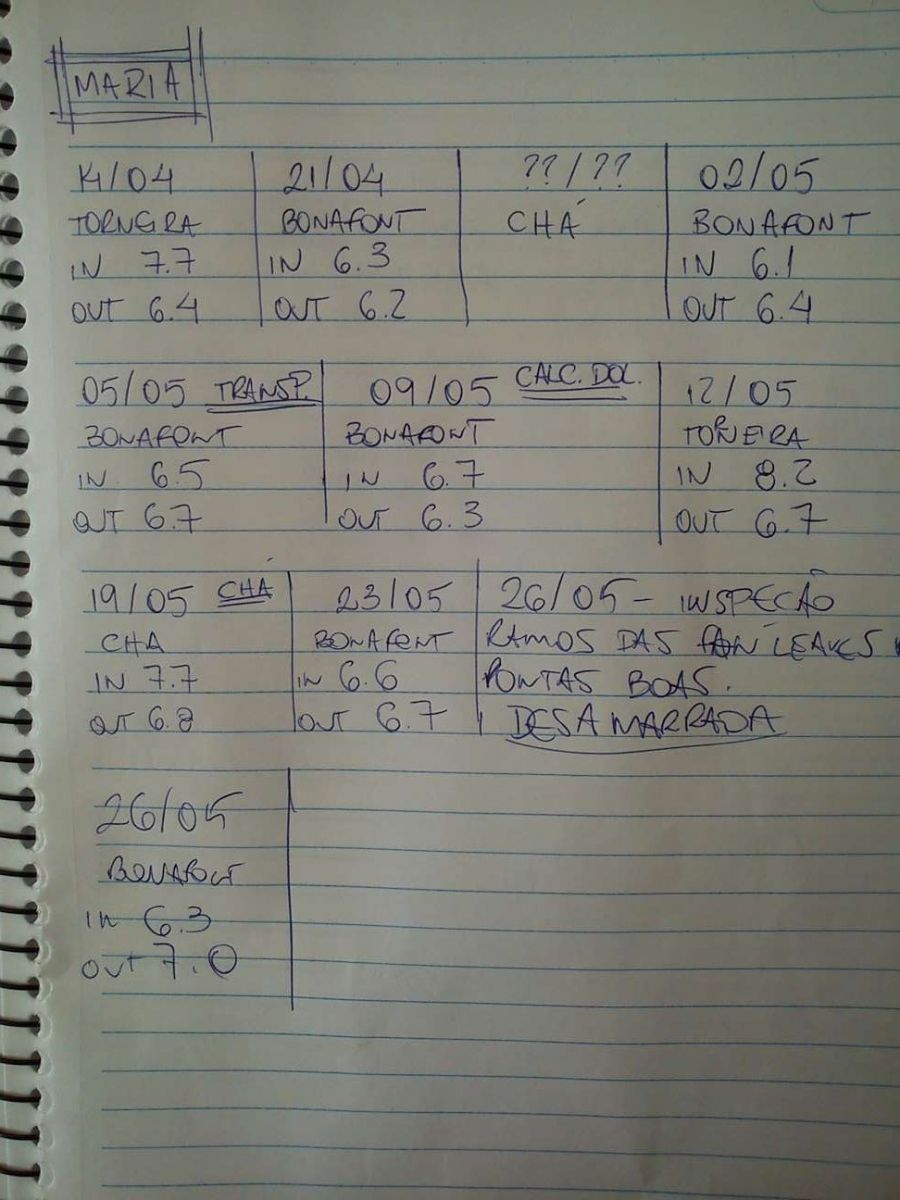 MARIA
14/04
TORNEIRA
IN 7.7
OUT 6.4
21/04
BONAFONT
IN 6.3
OUT 6.2
??/??
CHÁ
02/05
BONAFONT
IN 6.1
OUT 6.4
05/05 TRANSP.
BONAFONT
IN 6.5
OUT 6.7
09/05 CALC. DOL.
BONAFONT
IN 6.7
OUT 6.3
12/05
TORNEIRA
IN 8.2
OUT 6.7
19/05 CHÁ
CHA
IN 7.7
OUT 6.8
23/05
BONAFONT
IN 6.6
OUT 6.7
26/05 - INSPECÃO
RAMOS DAS FAN LEAVES
PONTAS BOAS.
DESAMARRADA
26/05
BONAFONT
IN 6.3
OUT 7.0